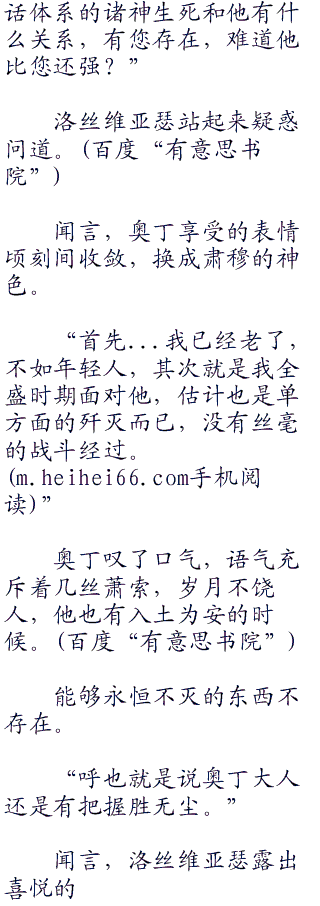 话体系的诸神生死和他有什
么关系，有您存在，难道他
比您还强？”
洛丝维亚瑟站起来疑惑
问道。(百度“有意思书
院”)
闻言，奥丁享受的表情
顷刻间收敛，换成肃穆的神
色。
“首先...我已经老了，
不如年轻人，其次就是我全
盛时期面对他，估计也是单
方面的歼灭而已，没有丝毫
的战斗经过。
(m.heihei66.com手机阅
读)”
奥丁叹了口气，语气充
斥着几丝萧索，岁月不饶
人，他也有入土为安的时
候。(百度“有意思书院”)
能够永恒不灭的东西不
存在。
“呼也就是说奥丁大人
还是有把握胜无尘。”
闻言，洛丝维亚瑟露出
喜悦的